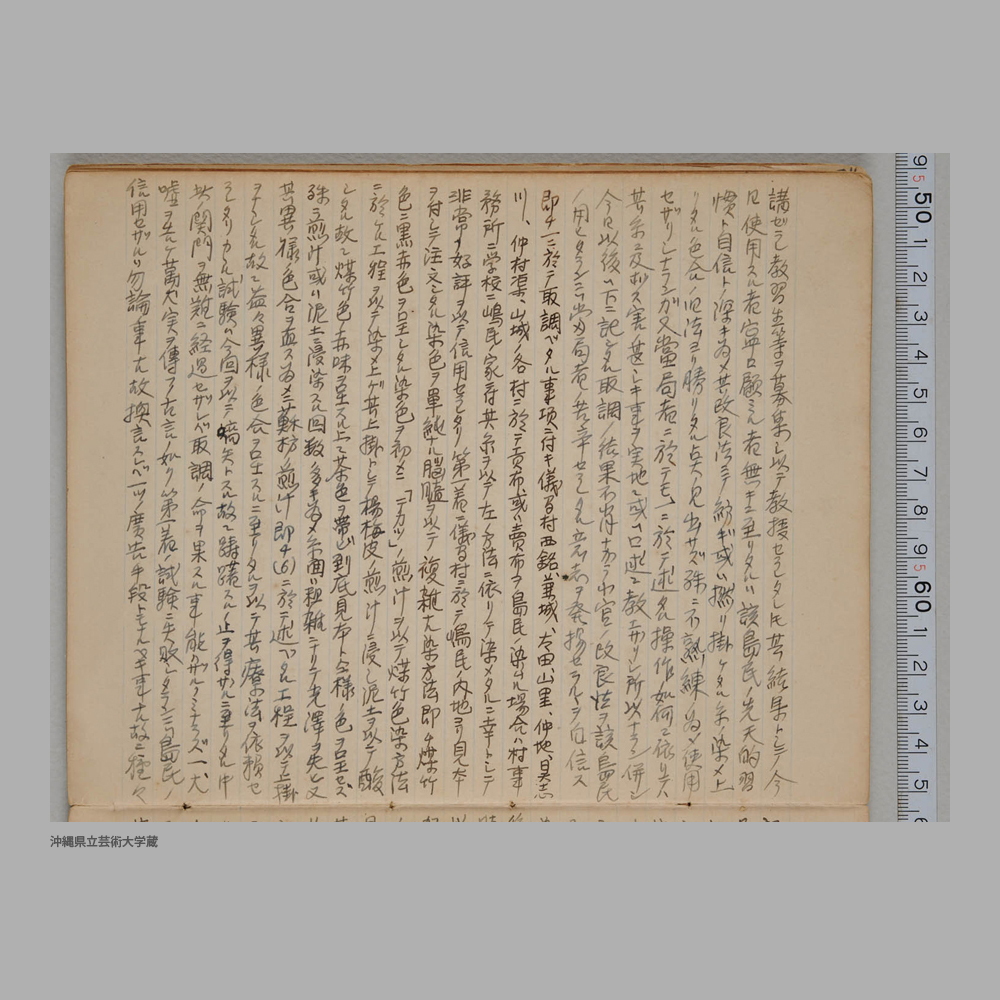 講ゼシ教習生等ヲ募集シ以テ教授セラレタレ氏其結果トシテ今
日使用スル者寧ロ顧ミル者無キニ至リタルハ該島民ノ先天的習
慣ト自信ト深キ為メ其改良法ニテ紡ギ或ハ撚リ掛ケタル糸染メ上
リタル色合ノ旧法ヨリ勝リタル点ヲ見出サズ殊ニ不熟練ノ為メ使用
セザリシナランガ又當局者ニ於テモ一ニ於テ述タル操作如何ニ依リテハ
其糸ニ及ボス害甚シキ事ヲ実地ニ或ハロ述ニ教エザリシ所以ナラン併シ
今日以後ハ下ニ記シタル取調ノ結果
用セラレンニハ当局者ノ苦辛セラレタル
即チ一ニ於テ取調ベタル事項ニ付キ儀間村西銘、兼城、大田、山里、仲地、具志
川、仲村渠、山城ノ各村ニ於テ貢布或ハ賣布ヲ島民ノ染ムル場合ハ村事
務所ニ学校ニ嶋民家ニ持共糸ヲ以テ左ノ方法ニ依リテ染メタルニ幸トシテ
非常ナ好評ヲ以テ信用セラレタリ第一着ニ儀間村ニ於テ嶋民ノ内地ヨリ見本
ヲ付シテ注文シタル染色ヲ単純ナル脳髄ヲ以テ複雑ナ染方法即チ煤竹
色ニ黒赤色ヲ呈シタル染色ヲ初メニ「テカツ」ノ煎汁ヲ以テ煤竹色染方法
ニ於ケル工程ヲ以テ染メ上ゲ其上掛トシテ楊梅皮ノ煎汁ニ浸シ泥土ヲ以テ酸
シタル故ニ煤竹色ノ赤味ヲ呈スル上ニ茶色ヲ帯ビ到底見本ト全様ノ色ヲ呈セズ
殊ニ煎汁或ハ泥土ニ浸染スル回数多キ為メ糸面ハ粗雑ニナリテ光澤ヲ失ヒ又
其異様ノ色合ヲ直ス為メニ蘇枋ノ煎汁即チ(6)ニ於テ述ベタル工程ヲ以テ上掛
ヲナシタル故ニ益々異様ノ色合ヲ呈スルニ至リタルヲ以テ其療法ヲ依頼セ
ラレタリカヽル試験ハ今回ヲ以テ嚆矢トスル故ニ躊躇スルノ止ヲ得ザルニ至リタレ氏
此ノ関門ヲ無難ニ経過セザレバ取調ノ命ヲ果スル事能ハザルノミナラズ一犬
嘘ヲ吠ケハ萬犬実ヲ傳フノ古言ノ如リ第一着ノ試験ニ失敗シタランニハ島民ノ
信用セザルハ勿論ノ事ナル故換言スレバ一ツノ廣告手段トモナルベキ事ナル故ニ種々
沖縄県立芸術大学蔵